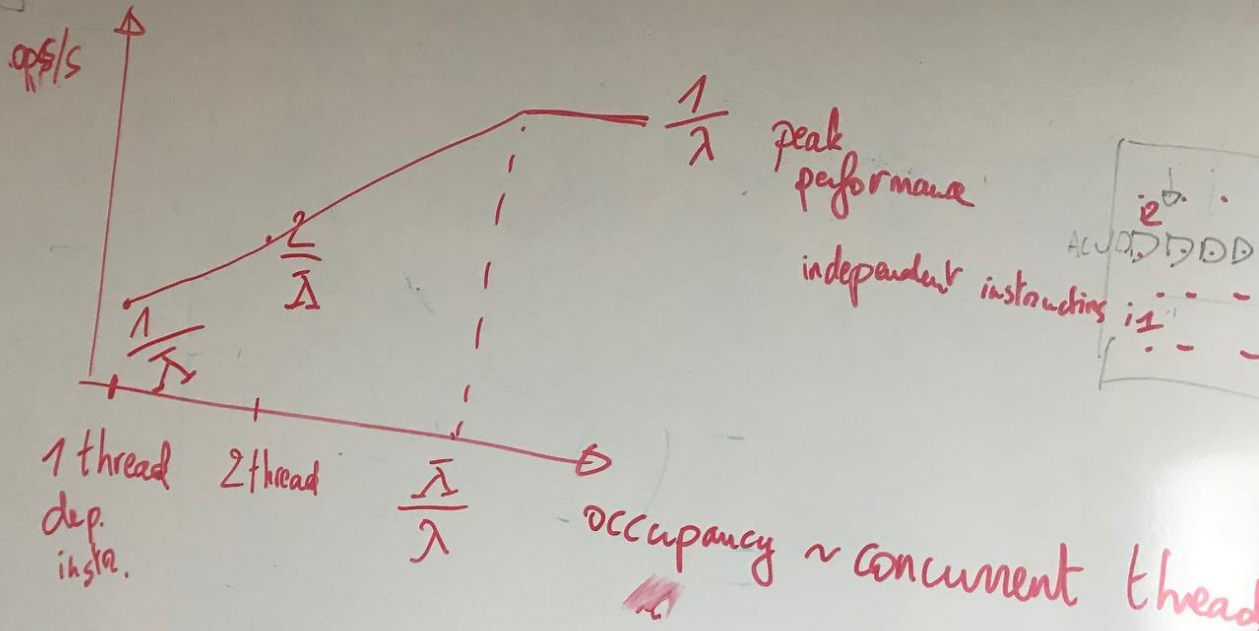 ops/s
1/λ peak
performance
independent instructions
2/Λ
1/Λ
i2
ALU
i1
1 thread
dep.
instr.
2 thread
Λ/λ
occupancy ~ concurrent thread